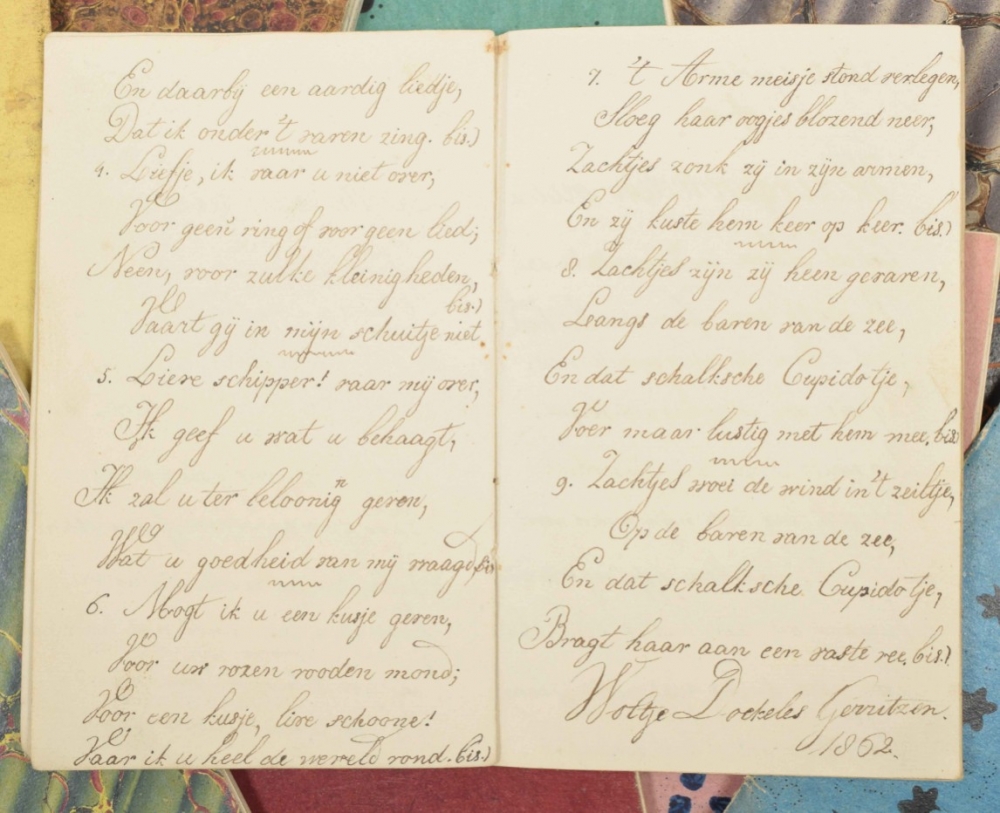 En daarbij een aardig liedje,
Dat ik onder 't varen zing. bis.)
4. Liefje, ik vaar u niet over,
Voor geen ring of voor geen lied;
Neen, voor zulke kleinigheden,
bis.)
Vaart gij in mijn schuitje niet.
5. Lieve schipper! vaar mij over,
Ik geef u wat u behaagt,
Ik zal u ter belooning geven,
Wat u goedheid van mij vraagd, bis
6. Mogt ik u een kusje geven,
Voor uw rozen rooden mond;
Voor een kusje, live schoone!
Vaar ik u heel de wereld rond. bis.)
7. 't Arme meisje stond verlegen,
Sloeg haar oogjes blozend neer,
Zachtjes zonk zij in zijn armen,
En zij kuste hem keer op keer. bis.)
8. Zachtjes zijn zij heen gevaren,
Langs de baren van de zee,
En dat schalksche Cupidotje,
Voer maar lustig met hem mee. bis
9. Zachtjes woei de wind in 't zeiltje,
Op de baren van de zee,
En dat schalksche Cupidotje,
Bragt haar aan een vaste ree. bis.)
Woltje Doekeles Gerritzen.
1862.